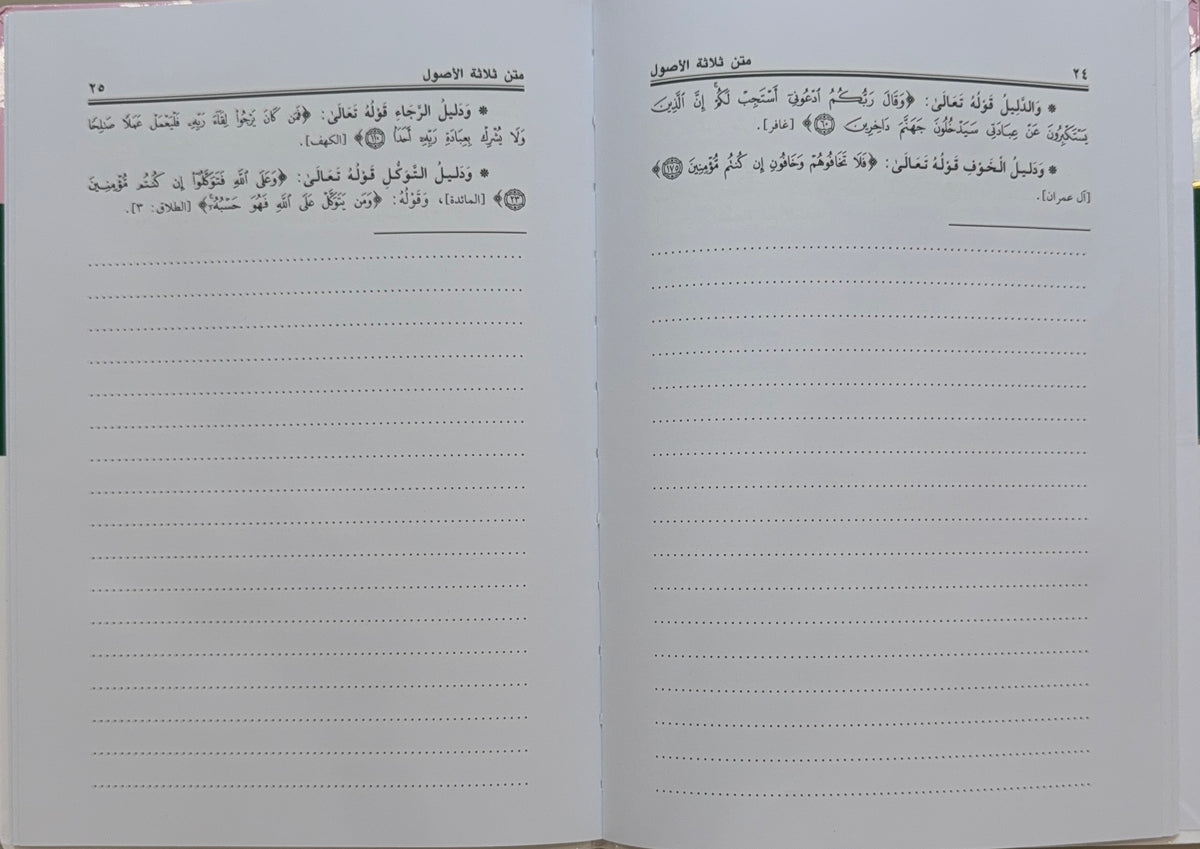 ٢٤ متن ثلاثة الأصول
* وَالدَّلِيلُ قَوْلُهُ تَعَالَىٰ: ﴿وَقَالَ رَبُّكُمُ ٱدْعُونِىٓ أَسْتَجِبْ لَكُمْ ۚ إِنَّ ٱلَّذِينَ
يَسْتَكْبِرُونَ عَنْ عِبَادَتِى سَيَدْخُلُونَ جَهَنَّمَ دَاخِرِينَ ٦٠﴾ [غافر].
* وَدَلِيلُ الْخَوْفِ قَوْلُهُ تَعَالَىٰ: ﴿فَلَا تَخَافُوهُمْ وَخَافُونِ إِن كُنتُم مُّؤْمِنِينَ ١٧٥﴾
[آل عمران].
متن ثلاثة الأصول ٢٥
* وَدَلِيلُ الرَّجَاءِ قَوْلُهُ تَعَالَىٰ: ﴿فَمَن كَانَ يَرْجُوا۟ لِقَآءَ رَبِّهِۦ فَلْيَعْمَلْ عَمَلًا صَـٰلِحًا
وَلَا يُشْرِكْ بِعِبَادَةِ رَبِّهِۦٓ أَحَدًۢا ١١٠﴾ [الكهف].
* وَدَلِيلُ التَّوَكُّلِ قَوْلُهُ تَعَالَىٰ: ﴿وَعَلَى ٱللَّهِ فَتَوَكَّلُوٓا۟ إِن كُنتُم مُّؤْمِنِينَ
٢٣﴾ [المائدة]، وَقَوْلُهُ: ﴿وَمَن يَتَوَكَّلْ عَلَى ٱللَّهِ فَهُوَ حَسْبُهُۥٓ ۚ﴾ [الطلاق: ٣].